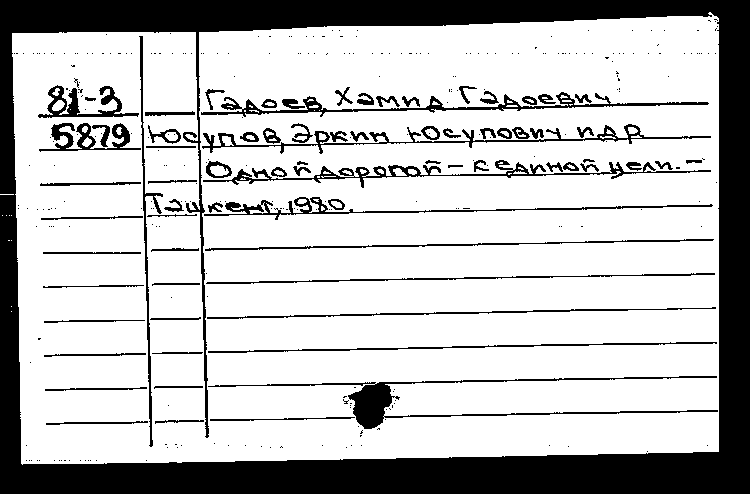 81-3 Гадоев, Хамид Гадоевич
5879 Юсупов, Эркин Юсупович и др.
Одной дорогой – к единой цели. –
Ташкент, 1980.